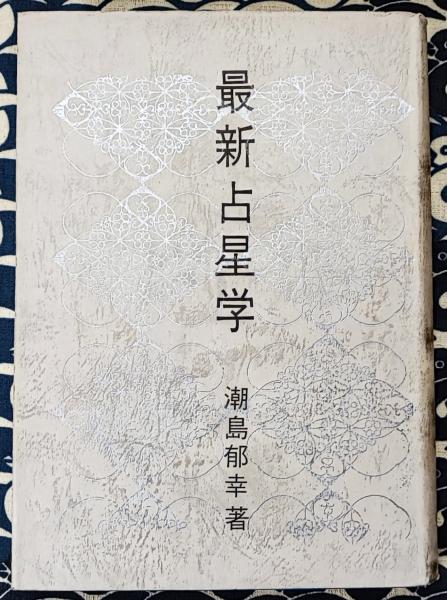 最新占星学
潮島郁幸著